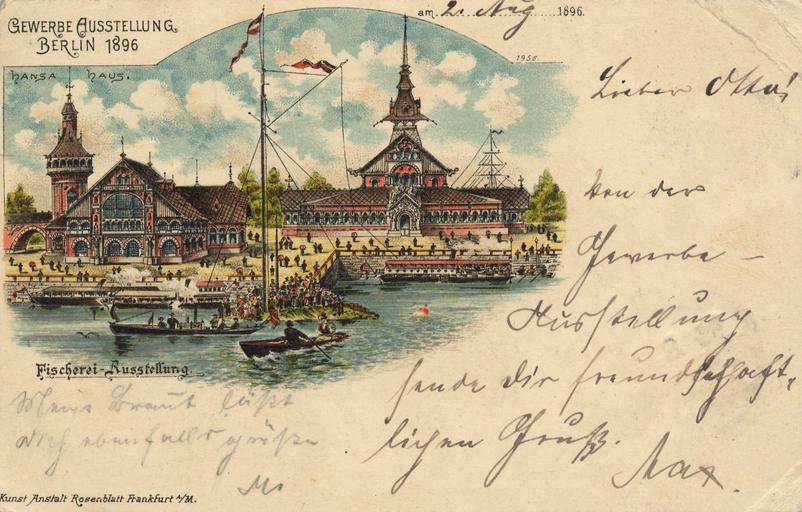 GEWERBE AUSSTELLUNG
BERLIN 1896
am 2. Aug 1896.
HANSA HAUS.
1958.
Lieber Otto!
Von der
Gewerbe-
Ausstellung
sende Dir freundschaft-
lichen Gruß.
Max.
Fischerei-Ausstellung.
Meine Braut läßt
Dich ebenfalls grüßen
Kunst Anstalt Rosenblatt Frankfurt a/M.